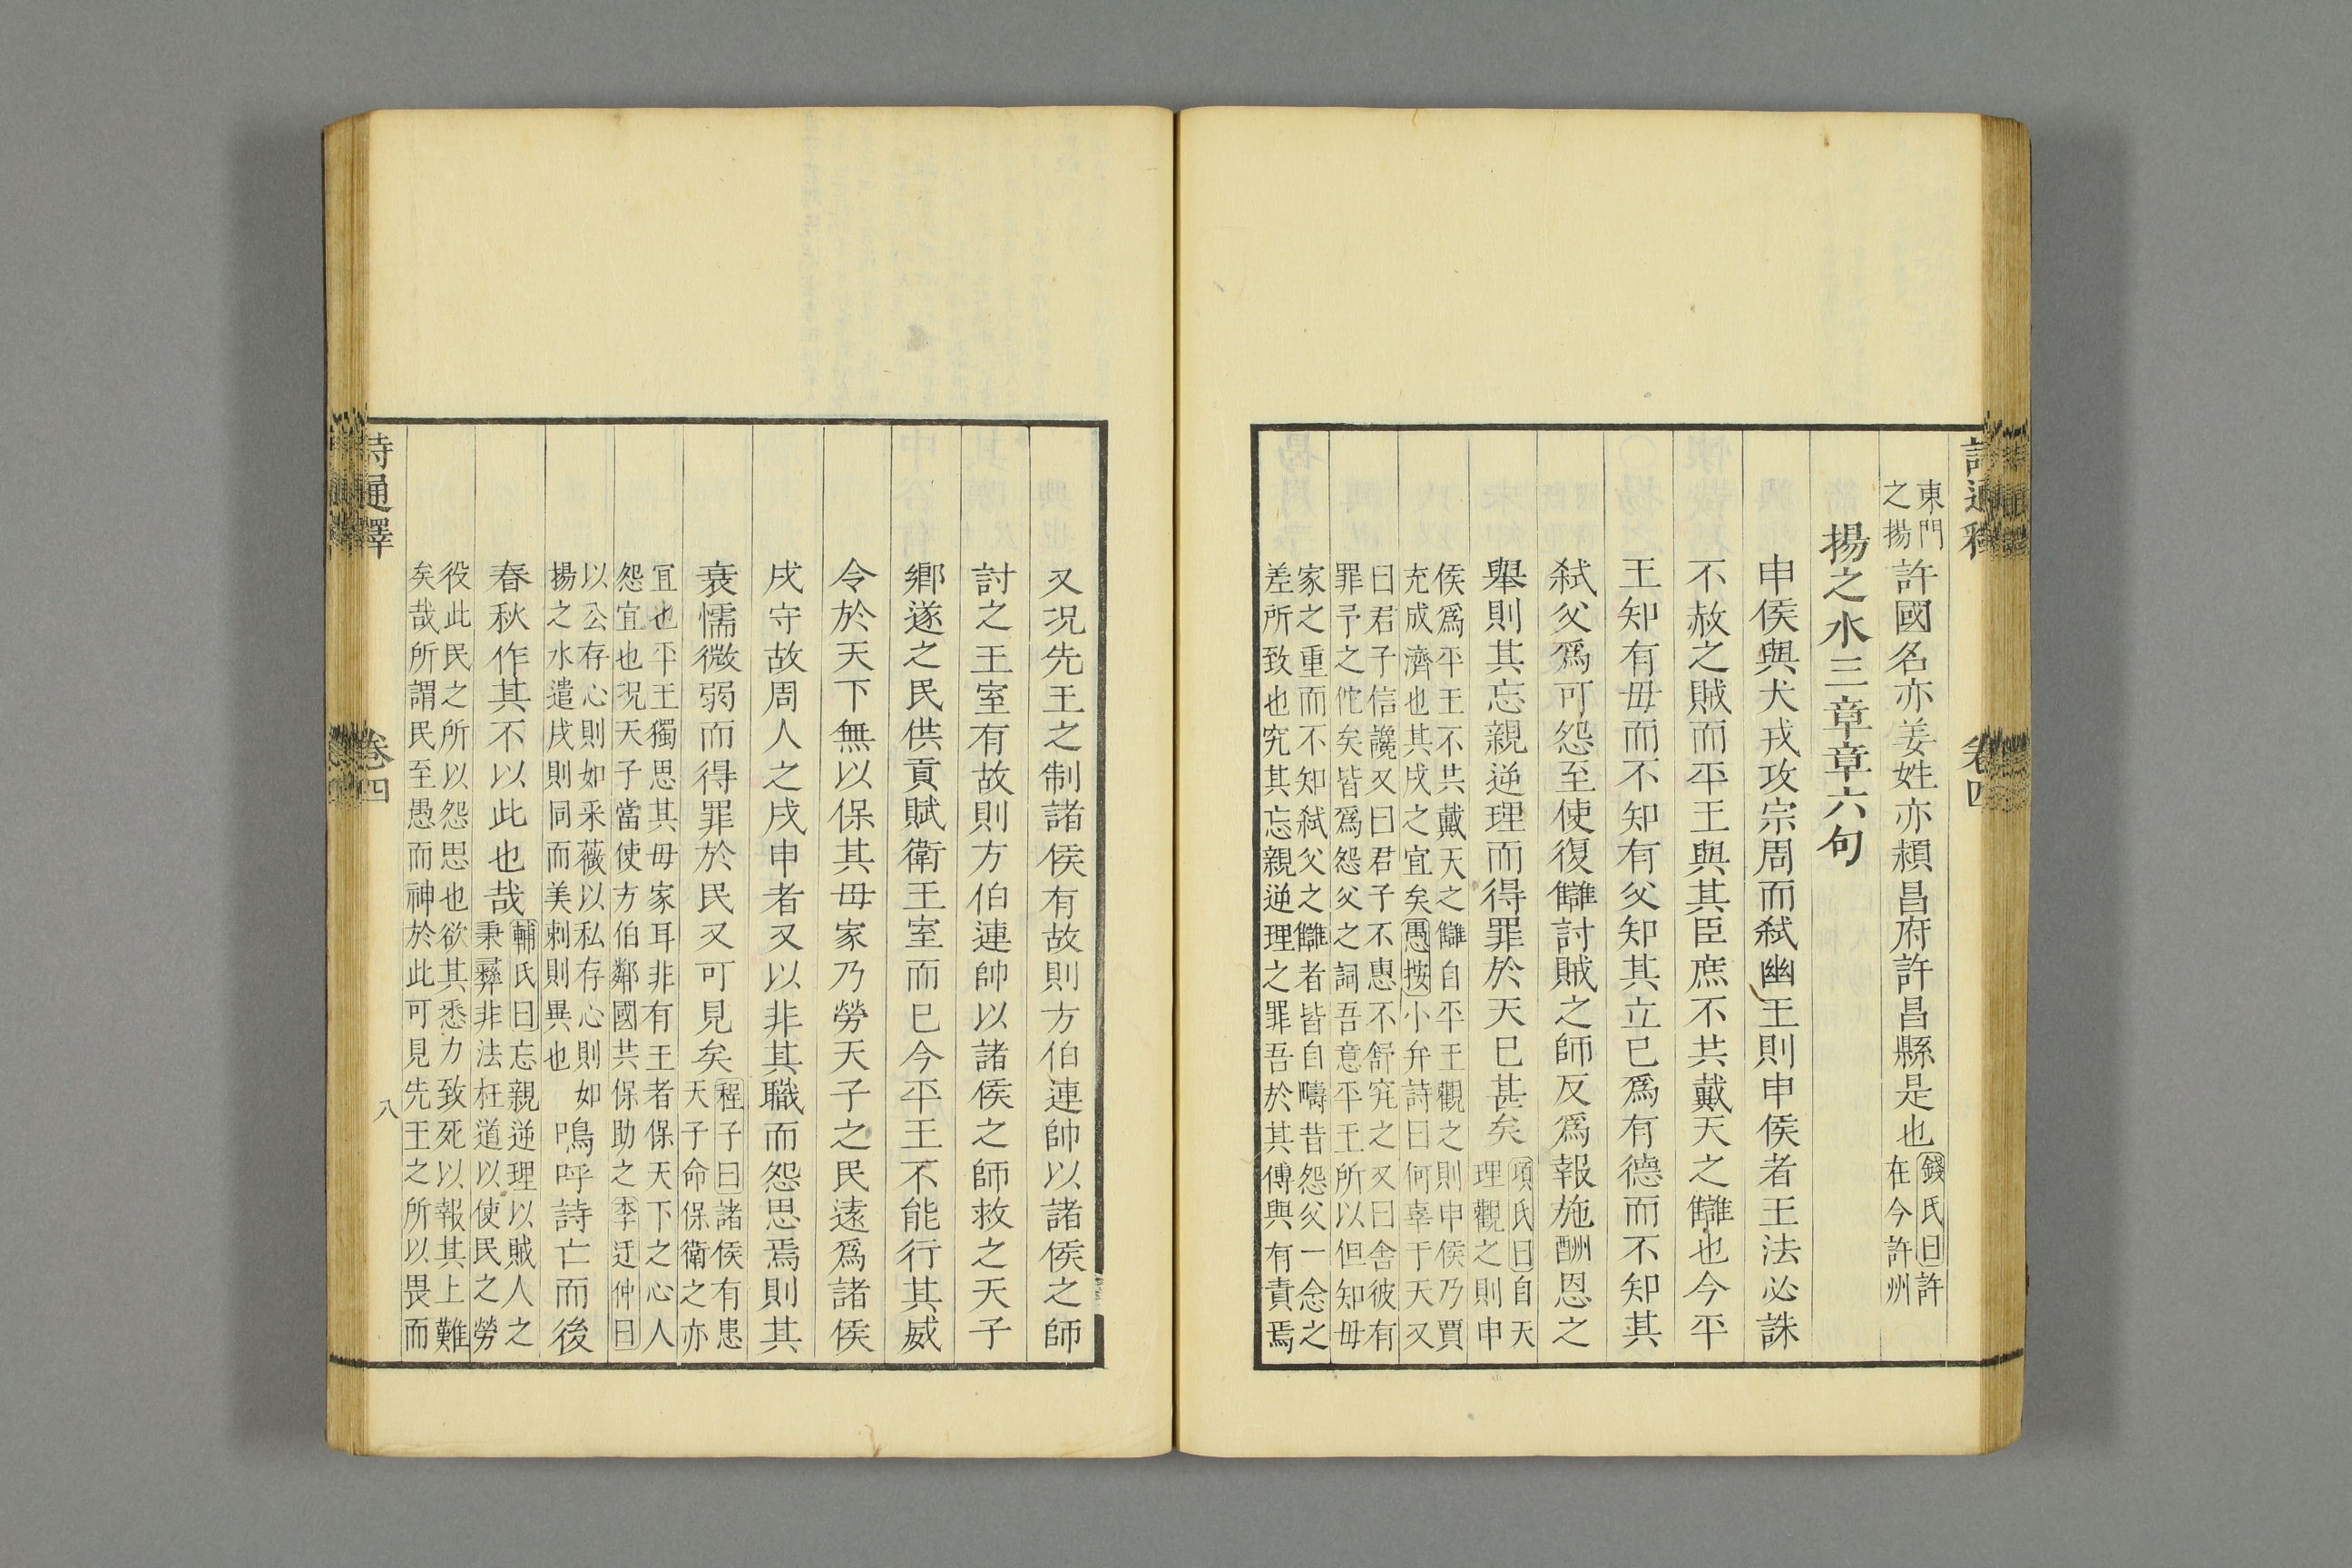 東門
之揚
許國名亦姜姓亦潁昌府許昌縣是也
錢氏曰許
在今許州
揚之水三章章六句
申侯與犬戎攻宗周而弑幽王則申侯者王法必誅
不赦之賊而平王與其臣庶不共戴天之讎也今平
王知有毋而不知有父知其立已爲有德而不知其
弑父爲可怨至使復讎討賊之師反爲報施酬恩之
舉則其忘親逆理而得罪於天已甚矣
項氏曰自天
理觀之則申
侯爲平王不共戴天之讎自平王觀之則申侯乃賈
充成濟也其戍之宜矣愚按小弁詩曰何辜于天又
曰君子信讒又曰君子不惠不舒究之又曰舍彼有
罪予之佗矣皆爲怨父之詞吾意平王所以但知毋
家之重而不知弑父之讎者皆自疇昔怨父一念之
差所致也究其忘親逆理之罪吾於其傅與有責焉
又况先王之制諸侯有故則方伯連帥以諸侯之師
討之王室有故則方伯連帥以諸侯之師救之天子
鄉遂之民供貢賦衛王室而已今平王不能行其威
令於天下無以保其毋家乃勞天子之民遠爲諸侯
戍守故周人之戍申者又以非其職而怨思焉則其
衰懦微弱而得罪於民又可見矣
程子曰諸侯有患
天子命保衛之亦
宜也平王獨思其毋家耳非有王者保天下之心人
怨宜也况天子當使方伯鄰國共保助之李迂仲曰
以公存心則如采薇以私存心則如
揚之水遣戍則同而美刺則異也
嗚呼詩亡而後
春秋作其不以此也哉
輔氏曰忘親逆理以賊人之
秉彝非法枉道以使民之勞
役此民之所以怨思也欲其悉力致死以報其上難
矣哉所謂民至愚而神於此可見先王之所以畏而
詩通釋
卷四
八